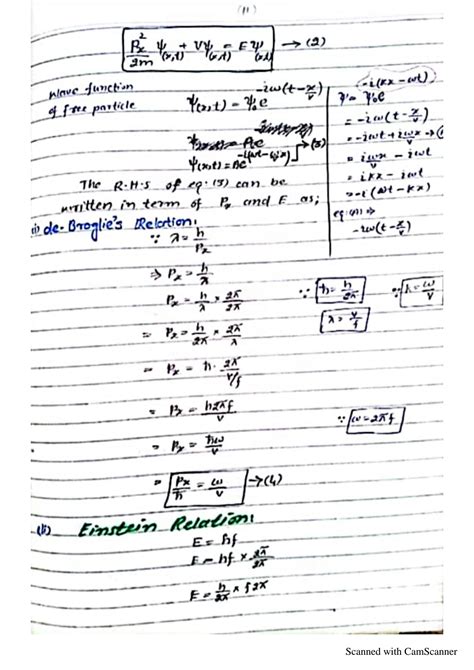 (11)
Pₓ²/2m ψ(x,t) + Vψ(x,t) = Eψ(x,t) → (2)
wave function
of free particle
ψ(x,t) = ψ₀e^-iω(t-x/v)
ψ(x,t) = Ae^-i(ωt-ωx/v) → (3)
ψ = ψ₀e^-i(kx-ωt)
= -iω(t-x/v)
= -iωt + iωx/v
= iωx/v - iωt
= ikx - iωt
= -i(ωt-kx)
eq (1) ⇒
-iω(t-x/v)
The R.H.S of eq (3) can be
written in term of Pₓ and E as;
(i) de-Broglie's Relation:
∵ λ = h/Pₓ
⇒ Pₓ = h/λ
Pₓ = h/λ × 2π/2π ∵ ħ = h/2π ∵ k = ω/v
= Pₓ = h/2π × 2π/λ λ = v/f
= Pₓ = ħ · 2π/v/f
= Pₓ = ħ2πf/v
= Pₓ = ħω/v ∵ ω = 2πf
= Pₓ/ħ = ω/v → (4)
(ii) Einstein Relation:
E = hf
E = hf × 2π/2π
E = h/2π × f2π
Scanned with CamScanner